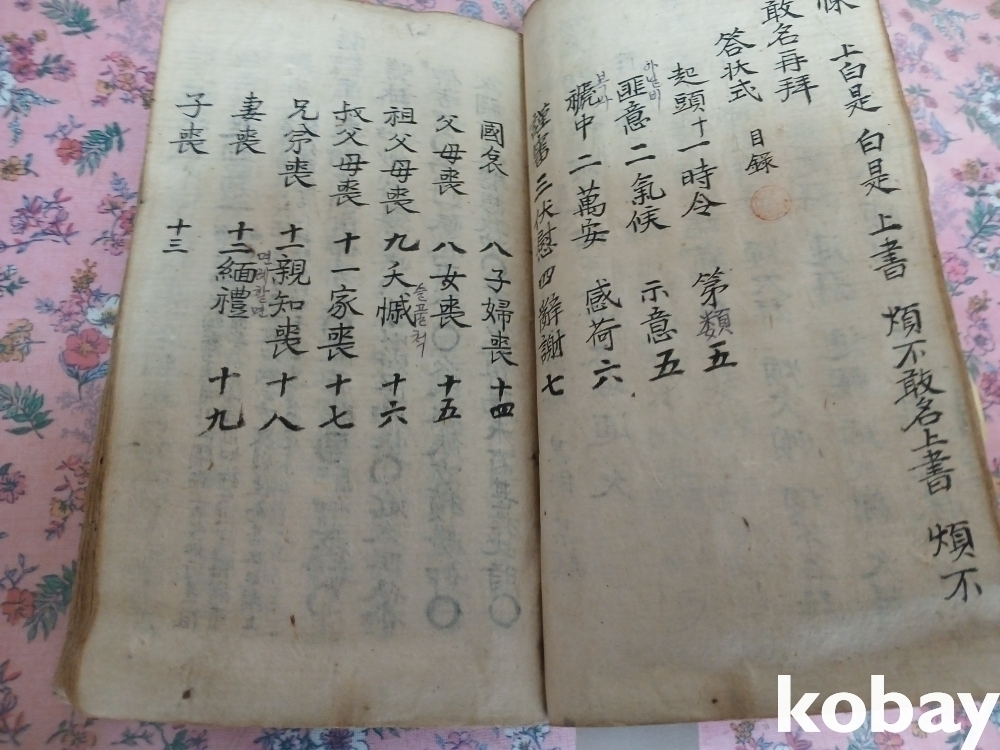 上白是 白是 上書 煩不敢名上書 煩不
敢名再拜
答狀式 目錄
起頭 十一時令 第類五
匪意 아닐비 二氣候 示意 五
中 二萬安 感荷 六
謹審 三伏慰 四辭謝 七
國哀 八子婦喪 十四
父母喪 八女喪 十五
祖父母喪 九夭慽 슬플척 十六
叔父母喪 十一家喪 十七
兄弟喪 十一親知喪 十八
妻喪 十二緬禮 면례할면 十九
子喪 十三
kobay